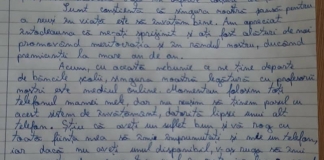 Sunt conștientă că singura noastră șansă pentru
a reuși în viață este să învățăm bine. Am apreciat
întotdeauna că ne-ați sprijinit și ați fost alături de noi
promovând meritocrația și în rândul nostru, ducând
premianții la mare an de an.
Acum, cu această situație ce ne ține departe
de băncile școlii, singura noastră legătură cu profesorii
noștri este mediul online. Momentan folosim toți
telefonul mamei mele, dar nu reușim să ținem pasul cu
acest sistem de învățământ, datorită lipsei unui alt
telefon. Știu că aveți un suflet bun și vă rog cu
toată ființa mea să faceți împrumut de un telefon,
iar dacă nu aveți unul disponibil, v-aș ruga să îmi